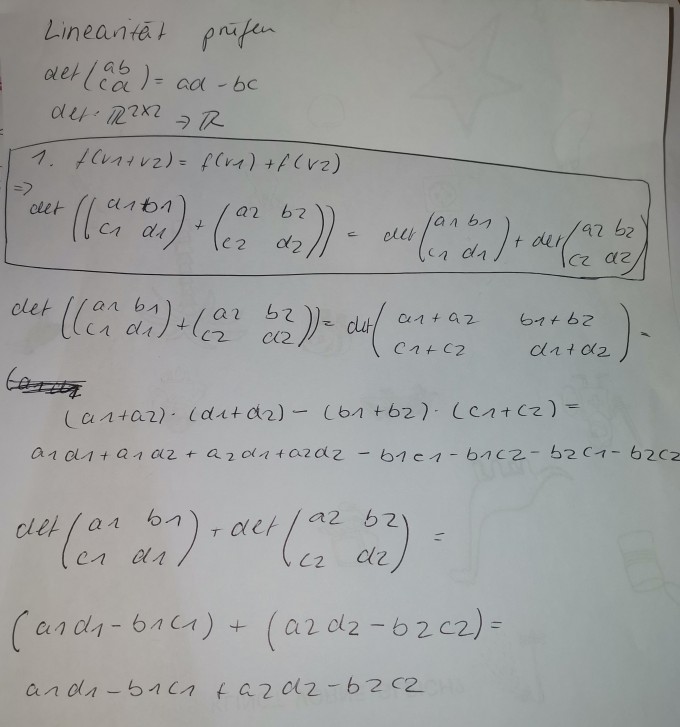 Linearität prüfen
det(ab
cd) = ad - bc
det: ℝ2x2 → ℝ
1. f(v1+v2) = f(v1) + f(v2)
=>
det ((a1 b1
c1 d1) + (a2 b2
c2 d2)) = det(a1 b1
c1 d1) + det(a2 b2
c2 d2)
det ((a1 b1
c1 d1) + (a2 b2
c2 d2)) = det(a1+a2 b1+b2
c1+c2 d1+d2) =
(a1+a2) · (d1+d2) - (b1+b2) · (c1+c2) =
a1d1 + a1d2 + a2d1 + a2d2 - b1c1 - b1c2 - b2c1 - b2c2
det(a1 b1
c1 d1) + det(a2 b2
c2 d2) =
(a1d1 - b1c1) + (a2d2 - b2c2) =
a1d1 - b1c1 + a2d2 - b2c2